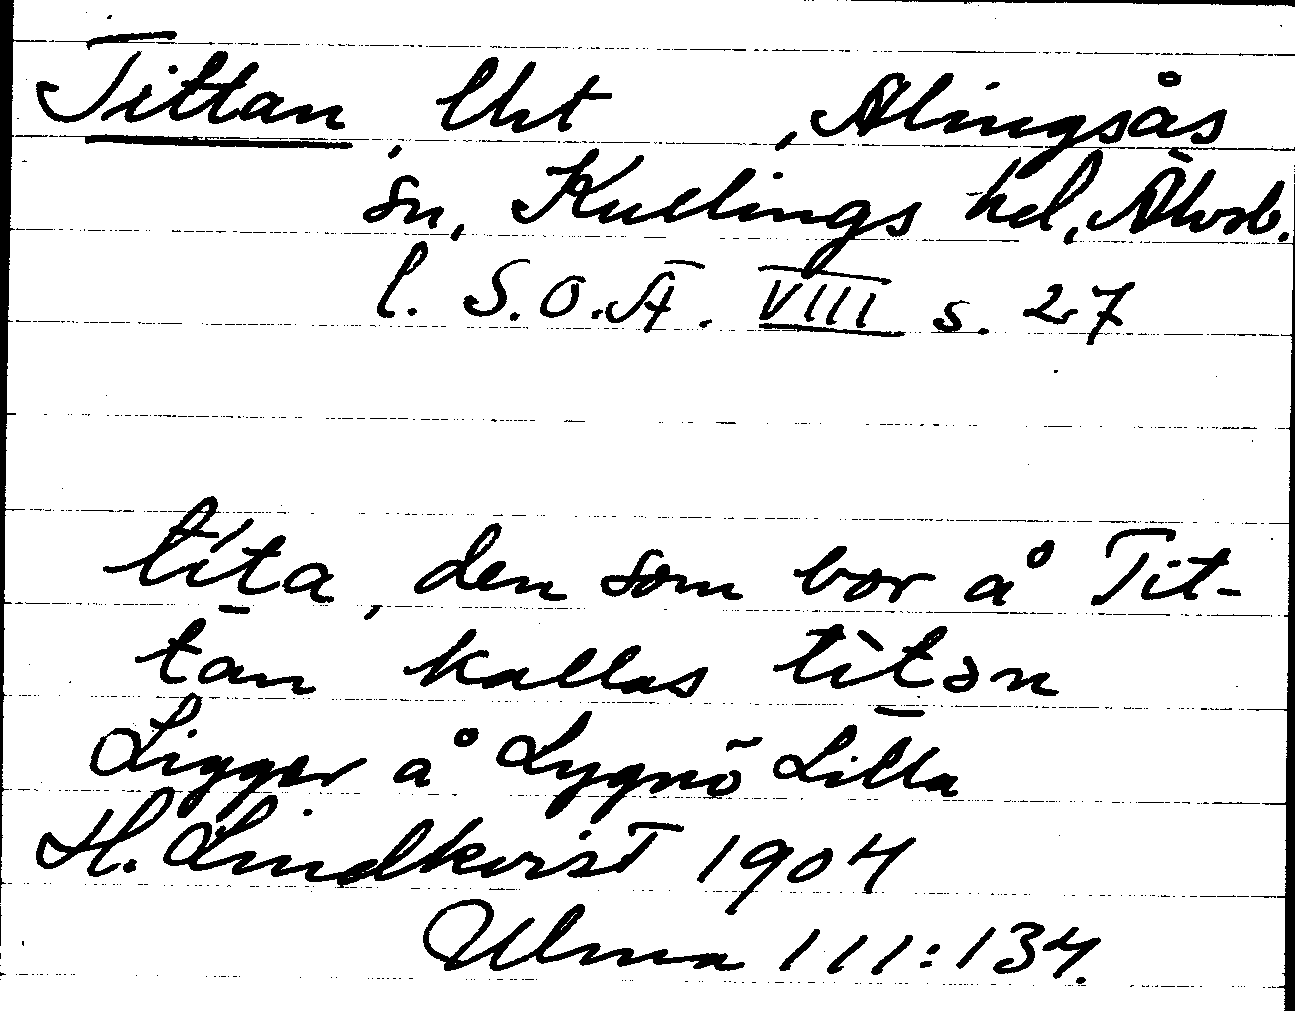 Tittan, lht, Alingsås
sn, Kullings hd, Älvsb.
l. S.O.Ä. VIII s. 27
títa, den som bor å Tit-
tan kallas tìtən
Ligger å Lygnö Lilla
H. Lindkvist 1904
Ulma 111:134.